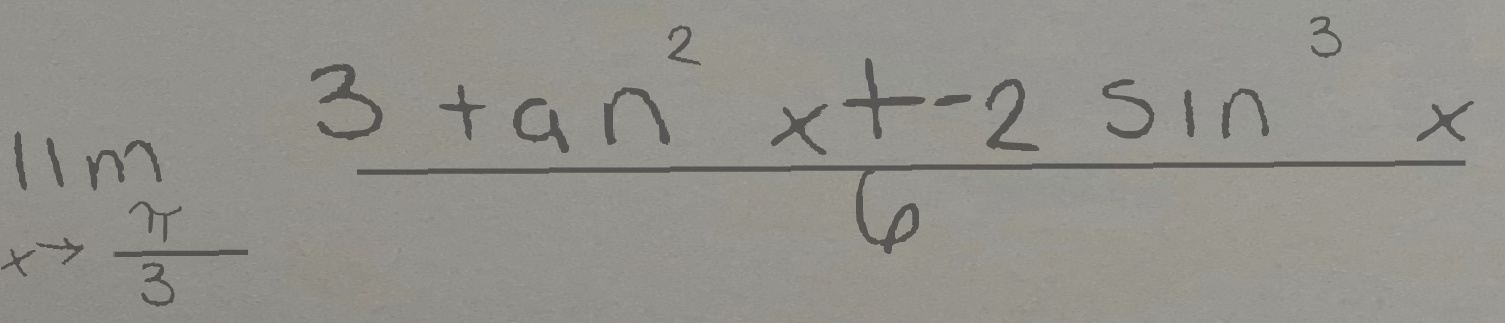 lim_{x \to \frac{\pi}{3}} \frac{3 \tan^2 x + -2 \sin^3 x}{6}